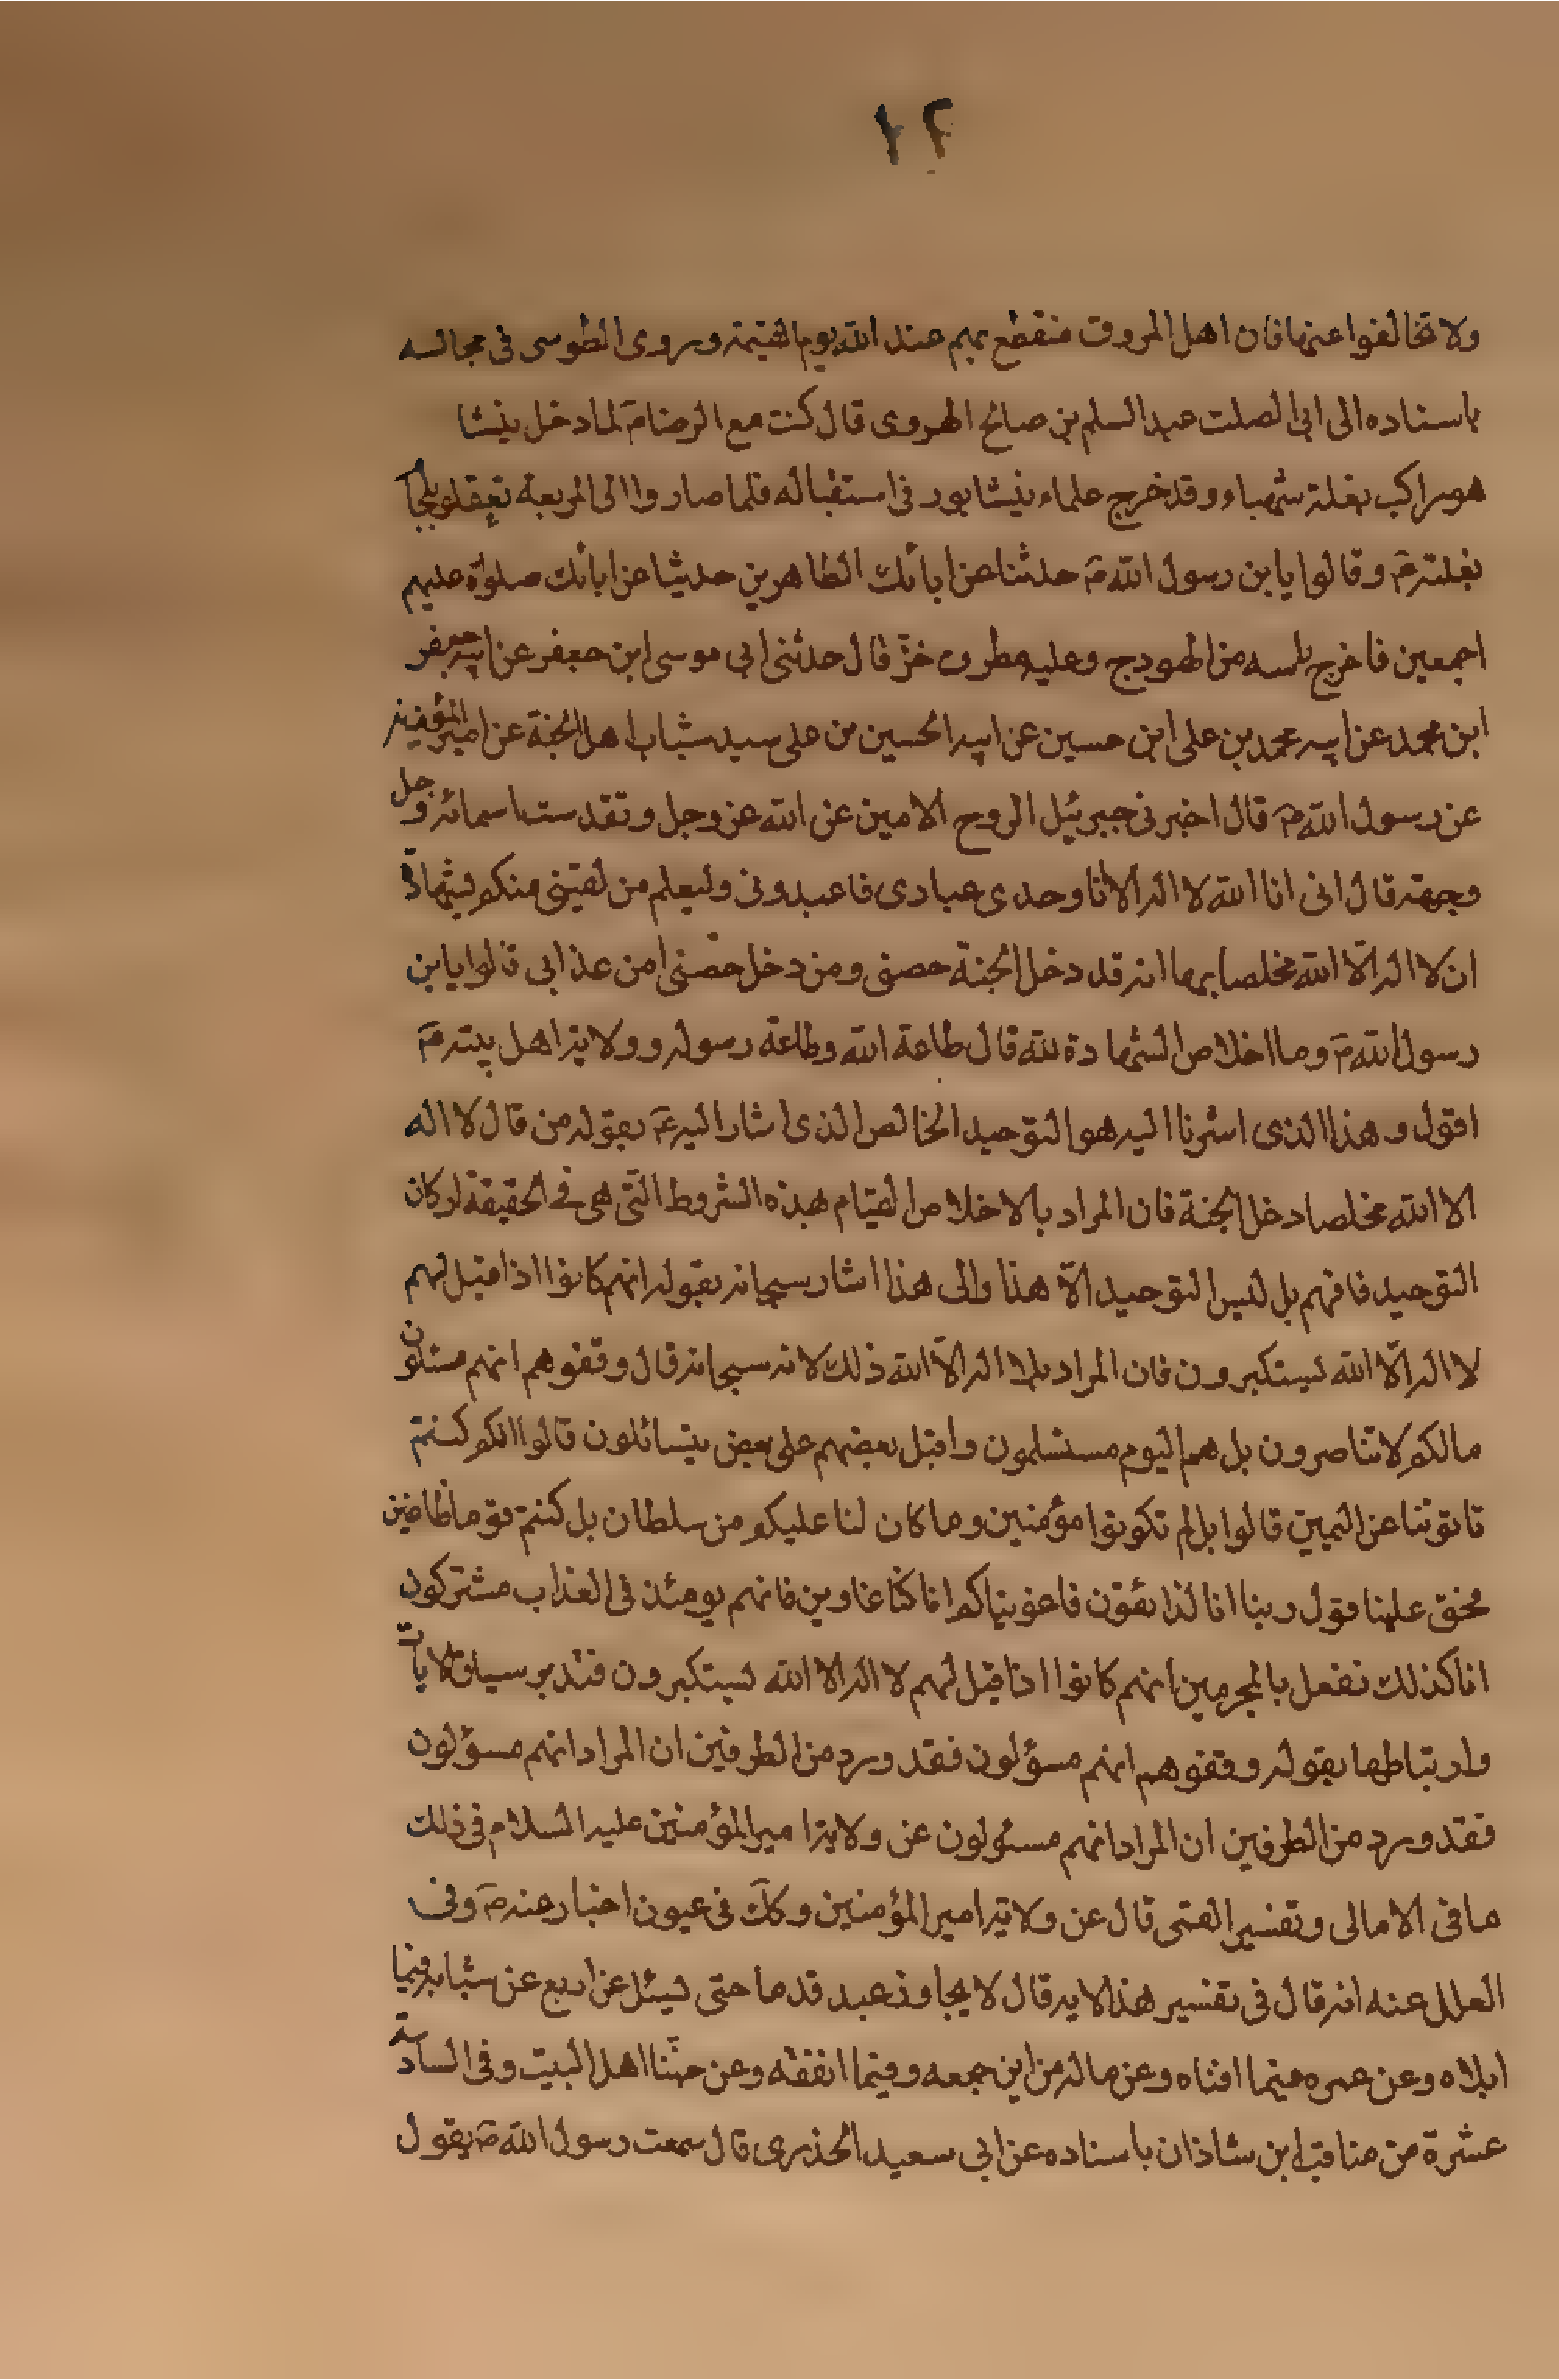 ١٢
ولا تخالفوا عنها فان اهل المروق منقطع بهم عند الله يوم القيمة وروى الطوسى فى مجالسه
باسناده الى ابى الصلت عبد السلم بن صالح الهروى قال كنت مع الرضا م لما دخل نيشا
هو راكب بغلة شهباء وقد خرج علماء نيشابور فى استقباله فلما صاروا الى المربعة تعقلو بلجا
بغلته م وقالوا يا بن رسول الله م حدثنا عن ابائك الطاهرين حديثا عن ابائك صلوة عليهم
اجمعين فاخرج راسه من الهودج وعليه مطرف خزّ قال حدثنى ابى موسى ابن جعفر عن ابيه جعفر
ابن محمد عن ابيه محمد بن على ابن حسين عن ابيه الحسين من على سيد شباب اهل الجنة عن امير المؤمنين
عن رسول الله م قال اخبرنى جبرئيل الروح الامين عن الله عز وجل وتقدست اسمائه وجل
وجهه قال انى انا الله لا اله الا انا وحدى عبادى فاعبدونى وليعلم من لقينى منكم بشهادة
ان لا اله الّا الله مخلصا بها انه قد دخل الجنة حصنى ومن دخل حصنى امن عذابى قالوا يا بن
رسول الله م وما اخلاص الشهادة لله قال طاعة الله وطاعة رسوله وولاية اهل بيته م
اقول وهذا الذى اشرنا اليه هو التوحيد الخالص الذى اشار اليه ع بقوله من قال لا اله
الا الله مخلصا دخل الجنة فان المراد بالاخلاص القيام بهذه الشروط التى هى فى الحقيقة اركان
التوحيد فافهم بل ليس التوحيد الّا هذا والى هذا اشار سبحانه بقوله انهم كانوا اذا قيل لهم
لا اله الّا الله يستكبرون فان المراد بلا اله الّا الله ذلك لانه سبحانه قال وقفوهم انهم مسئلون
مالكم لا تناصرون بل هم اليوم مستسلمون واقبل بعضهم على بعض يتسائلون قالوا انكم كنتم
تاتوننا عن اليمين قالوا بل لم تكونوا مؤمنين وما كان لنا عليكم من سلطان بل كنتم قوما طاغين
فحق علينا قول ربنا انا لذائقون فاغويناكم انا كنا غاوين فانهم يومئذ فى العذاب مشتركون
انا كذلك نفعل بالمجرمين انهم كانوا اذا قيل لهم لا اله الا الله يستكبرون فتدبر سياق الايات
وارتباطها بقوله وقفوهم انهم مسؤلون فقد ورد من الطرفين ان المراد انهم مسؤلون
فقد ورد من الطرفين ان المراد انهم مسئولون عن ولاية امير المؤمنين عليه السلام فى ذلك
ما فى الامالى وتفسير القمى قال عن ولاية امير المؤمنين وكك فى عيون اخبار عنه م وفى
العلل عنه انه قال فى تفسير هذ الايه قال لا يجاوز عبد قدما حتى يسئل عن اربع عن شبابه فيما
ابلاه وعن عمره فيما افناه وعن ماله من اين جمعه وفيما انفقه وعن حبّنا اهل البيت وفى السادسة
عشرة من مناقب ابن شاذان باسناده عن ابى سعيد الخذرى قال سمعت رسول الله م يقول